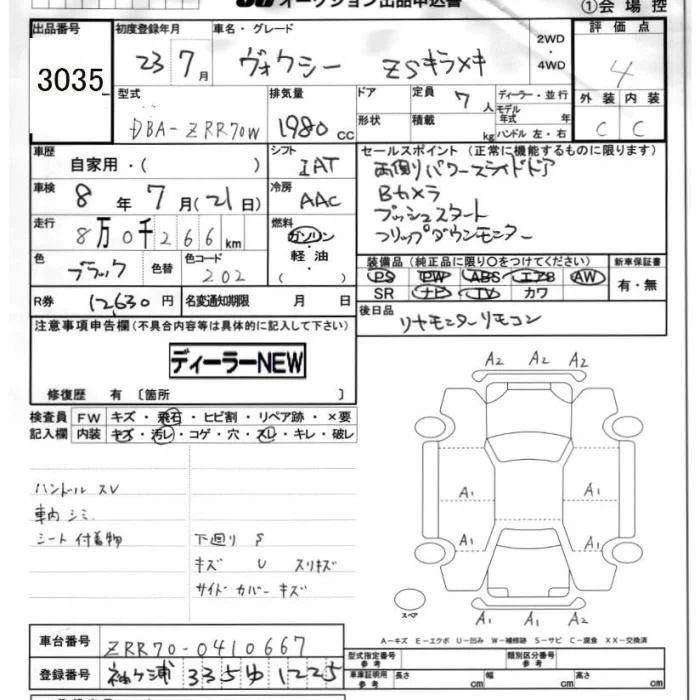 オークション出品申込書
①会場控
出品番号
3035
初度登録年月
23 7月
車名・グレード
ヴォクシー ZSキラメキ
2WD
・
4WD
評価点
4
外装 内装
C C
型式
DBA-ZRR70W
排気量
1980 CC
ドア
形状
定員 7人
積載 kg
ディーラー・並行
モデル
年式 年
ハンドル 左・右
車歴
自家用・( )
シフト
IAT
車検
8年 7月(21日)
冷房
AAC
走行
8万0千266km
燃料
ガソリン
・
軽油
・
( )
色
ブラック
色替
色コード
202
R券 12,630円
名変通知期限 月 日
セールスポイント(正常に機能するものに限ります)
両側パワースライドドア
Bカメラ
プッシュスタート
フリップダウンモニター
装備品(純正品に限り○をつけてください)
PS PW ABS エアB AW
SR ナビ TV カワ
新車保証書
有・無
後日品
リヤモニターリモコン
注意事項申告欄(不具合内容等は具体的に記入して下さい)
ディーラーNEW
修復歴 有 〔箇所 〕
検査員
記入欄
FW キズ・飛石・ヒビ割・リペア跡・×要
内装 キズ・汚レ・コゲ・穴・スレ・キレ・破レ
ハンドル スレ
車内 シミ
シート 付着物
下廻り S
キズ U スリキズ
サイドカバー キズ
A2 A2 A2
A1 A1
A1 A1
A1 A1 A2
スペア
A-キズ E-エクボ U-凹み W-補修跡 S-サビ C-腐食 XX-交換済
車台番号 ZRR70-0410667
登録番号 袖ヶ浦 335ゆ1225
型式指定番号
参考
類別区分番号
参考
車庫証明用
参考
長さ cm
幅 cm
高さ cm